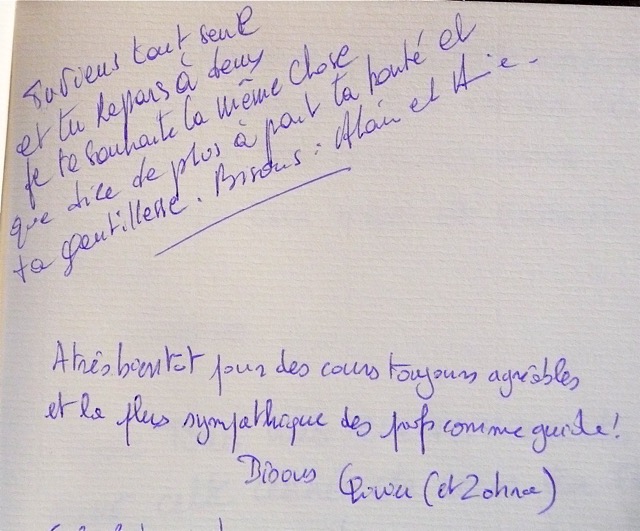 Tu viens tout seul
et tu repars à deux
Je te souhaite la même chose
que dire de plus à part ta bonté et
ta gentillesse. Bisous : Alain et
A très bientot pour des cours toujours agréables
et la plus sympathique des profs comme guide!
Bisous (et Zohra)